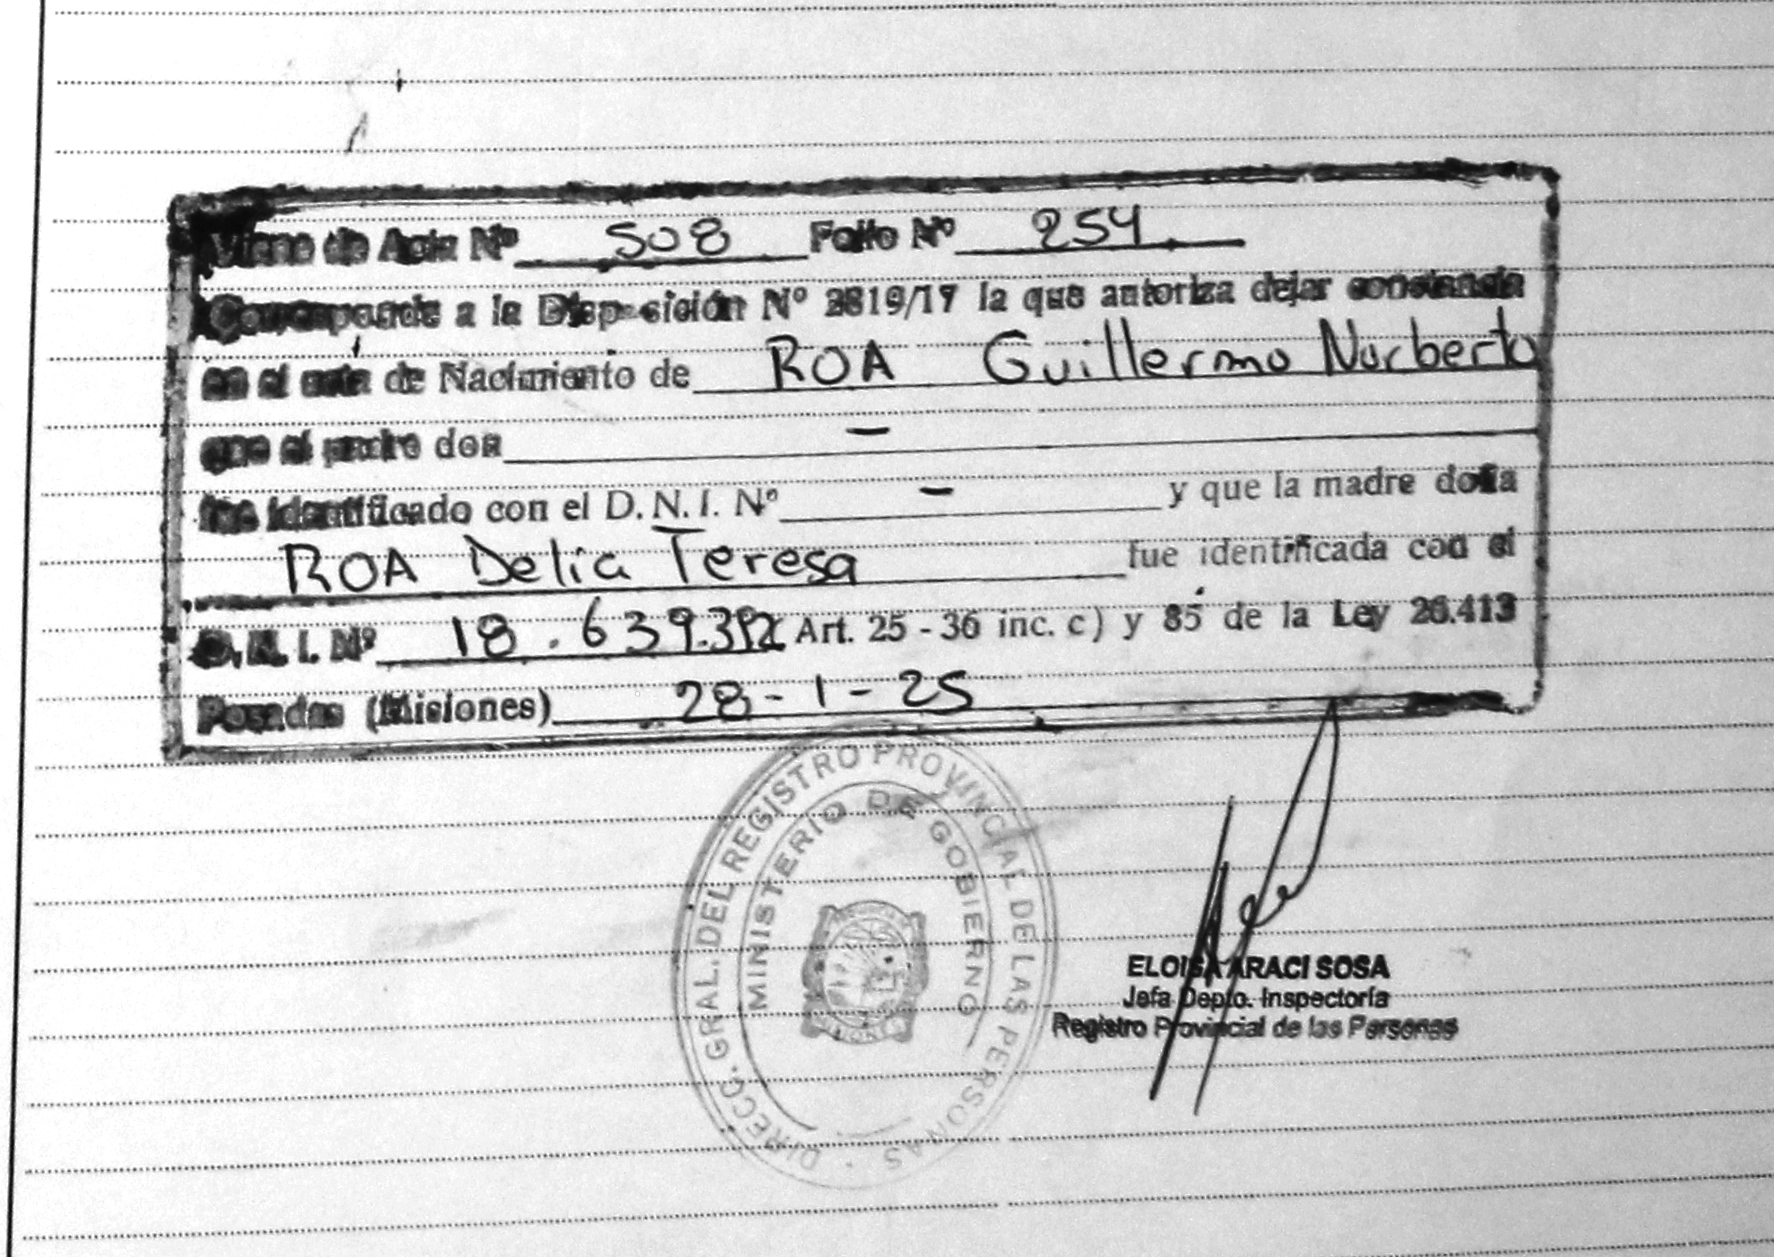 Viene de Acta Nº 508 Folio Nº 254
Corresponde a la Disposición Nº 2819/17 la que autoriza dejar constancia
en el acta de Nacimiento de ROA Guillermo Norberto
que el padre don -
fue identificado con el D.N.I. Nº - y que la madre doña
ROA Delia Teresa fue identificada con el
D.N.I. Nº 18.639.392 Art. 25 - 36 inc. c) y 85 de la Ley 26.413
Posadas (Misiones) 28-1-25
DIRECC. GRAL. DEL REGISTRO PROVINCIAL DE LAS PERSONAS
MINISTERIO DE GOBIERNO
ELOISA ARACI SOSA
Jefa Depto. Inspectoría
Registro Provincial de las Personas